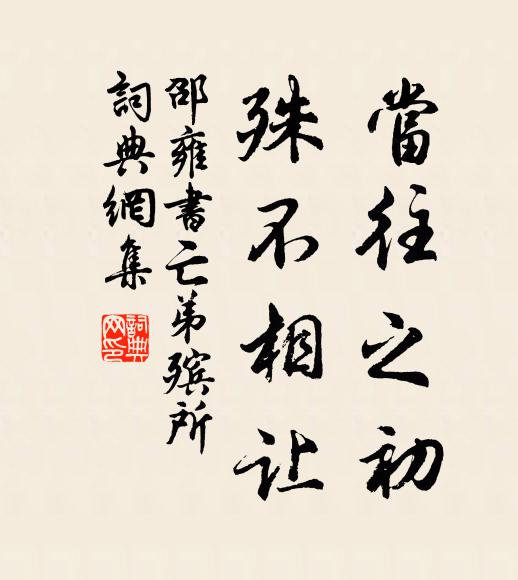 當往之初
殊不相让
邵雍書亡弟殡所
詞典網集
詞典
网印